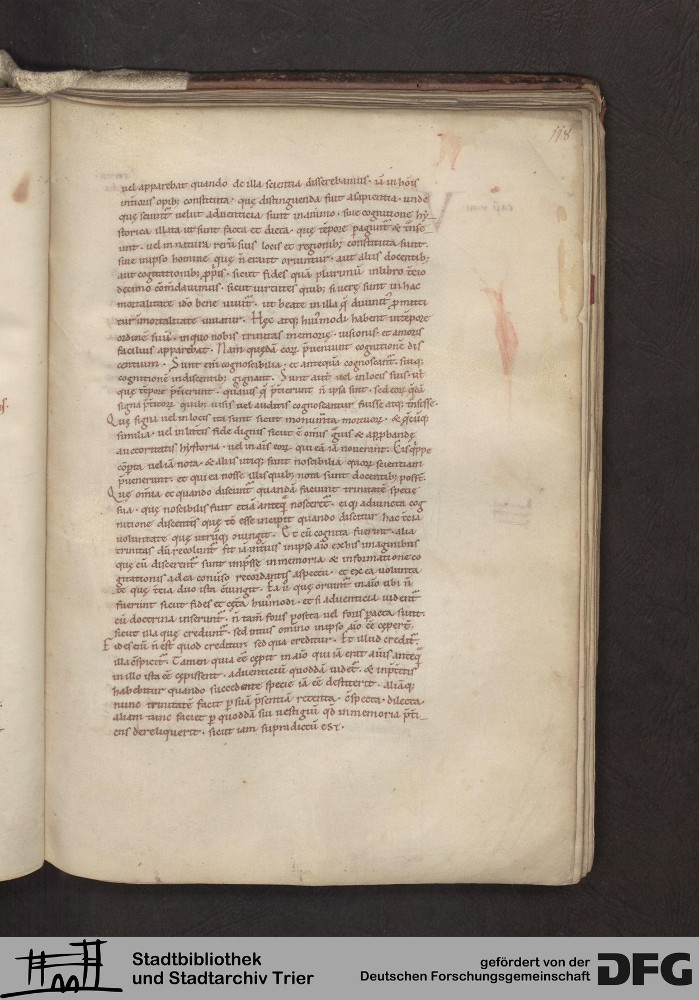 118
uel apparebat quando de illa scientia disserebamus. iā in hōis
intīorıs opib; constituta. quę distinguenda fuit a sapientia. unde
quę sciunt᷑ uelut aduenticia sunt in animo. siue cognitione hy-
storica illata ut sunt facta et dicta. quę tēpore paguntᷣ & tᷣnse
unt. uel in natura rerū suis locis et regionib; constituta sunt.
siue in ipso homine quę ñ erant oriuntur. aut aliis docentib;
aut cogitationib; ppiis. sicut fides quā plurimū in libro tᷣcio
decimo cōmdauimus. sicut uirtutes quib; si uerę sunt in hac
mortalitate ido bene uiuit᷑. ut beate in illa q̄ diuinit᷑ pmitti
tur īmortalitate uiuatur. Hęc atq; hui᷒modi habent in tēpore
ordinē suū. in quo nobis trinitas memorię. uisionis. et amoris
facilius apparebat. Nam quędā eoꝝ pueniunt cognitionē dis
centium. Sunt eni cognoscibilia. et antequā cognoscant᷑. suiq;
cognitionē in discentib; gignant. Sunt aut uel in locis suis. ul
quę tēpore pᷣterierunt. quāuis q̄ pᷣterierunt ñ ipsa sint. sed eoꝝ q̄dā
signa pᷣteritoꝝ quib; uisis uel auditis cognoscantur fuisse atq; tᷣnsisse.
Quę signa uel in locis ita sunt sicut monumᷠta mortuoꝝ. & q̄cūq;
similia. uel in litteris fide dignis sicut ē omis ᷣuis & approbandę
auctoritatis hystoria. uel in aīs eoꝝ qui ea iā nouerunt. Eis q̄ppe
cōpta uel iā nota. & aliis utiq; sunt noscibilia quoꝝ scientiam
puenerunt. et qui ea nosse illis quib; nota sunt docentib; possᷠt.
Quę omia et quando discunt᷑ quandā faciunt trinitatē specie
sua. quę noscibilis fuit etiā anteq̄ noscerᷠt᷑. eiq; adiuncta cog
nitione discentis quę tc̄ esse incipit quando discitur. hac tᷣcia
uoluntate quę utrūq; ꝯiungit. Et cū cognita fuerint. alia
trinitas dū recolunt᷑ fit iā interius in ipso aīo ex his imaginibus
quę cū discerent᷑ sunt impssę in memoria & informatione co
gitationis ad ea conuso recordantis aspectu. et ex ea uolunta
te quę tᷣcia duo ista ꝯiungit. Ea u quę oriunt᷑ in aīo ubi ñ
fuerunt sicut fides et cęta hui᷒modi. et si aduenticia uident᷑
cū doctrina inserunt᷑. ñ tam foris posita uel foris pacta sunt.
sicut illa quę credunt᷑. sed intus omino in ipso aīo eē cępert̄.
Fides eniū ñ est quod creditur. sed qua creditur. Et illud credit᷑.
illa ꝯspicit᷑. Tamen quia eē cępit in aīo qui iā erat aīus anteq̄
in illo ista eē cępissent. aduenticiū quoddā uidet᷑. & in pᷣteritis
habebitur quando succedente specie iā eē destiterit. aliāq;
nunc trinitatē facit p suā psentiā retenta. ꝯspecta. dilecta.
aliam tunc faciet p quoddā sui uestigiū qd in memoria pᷣti-
ens dereliquerit. sicut iam supra dictū est.
Stadtbibliothek
und Stadtarchiv Trier
gefördert von der
Deutschen Forschungsgemeinschaft
DFG